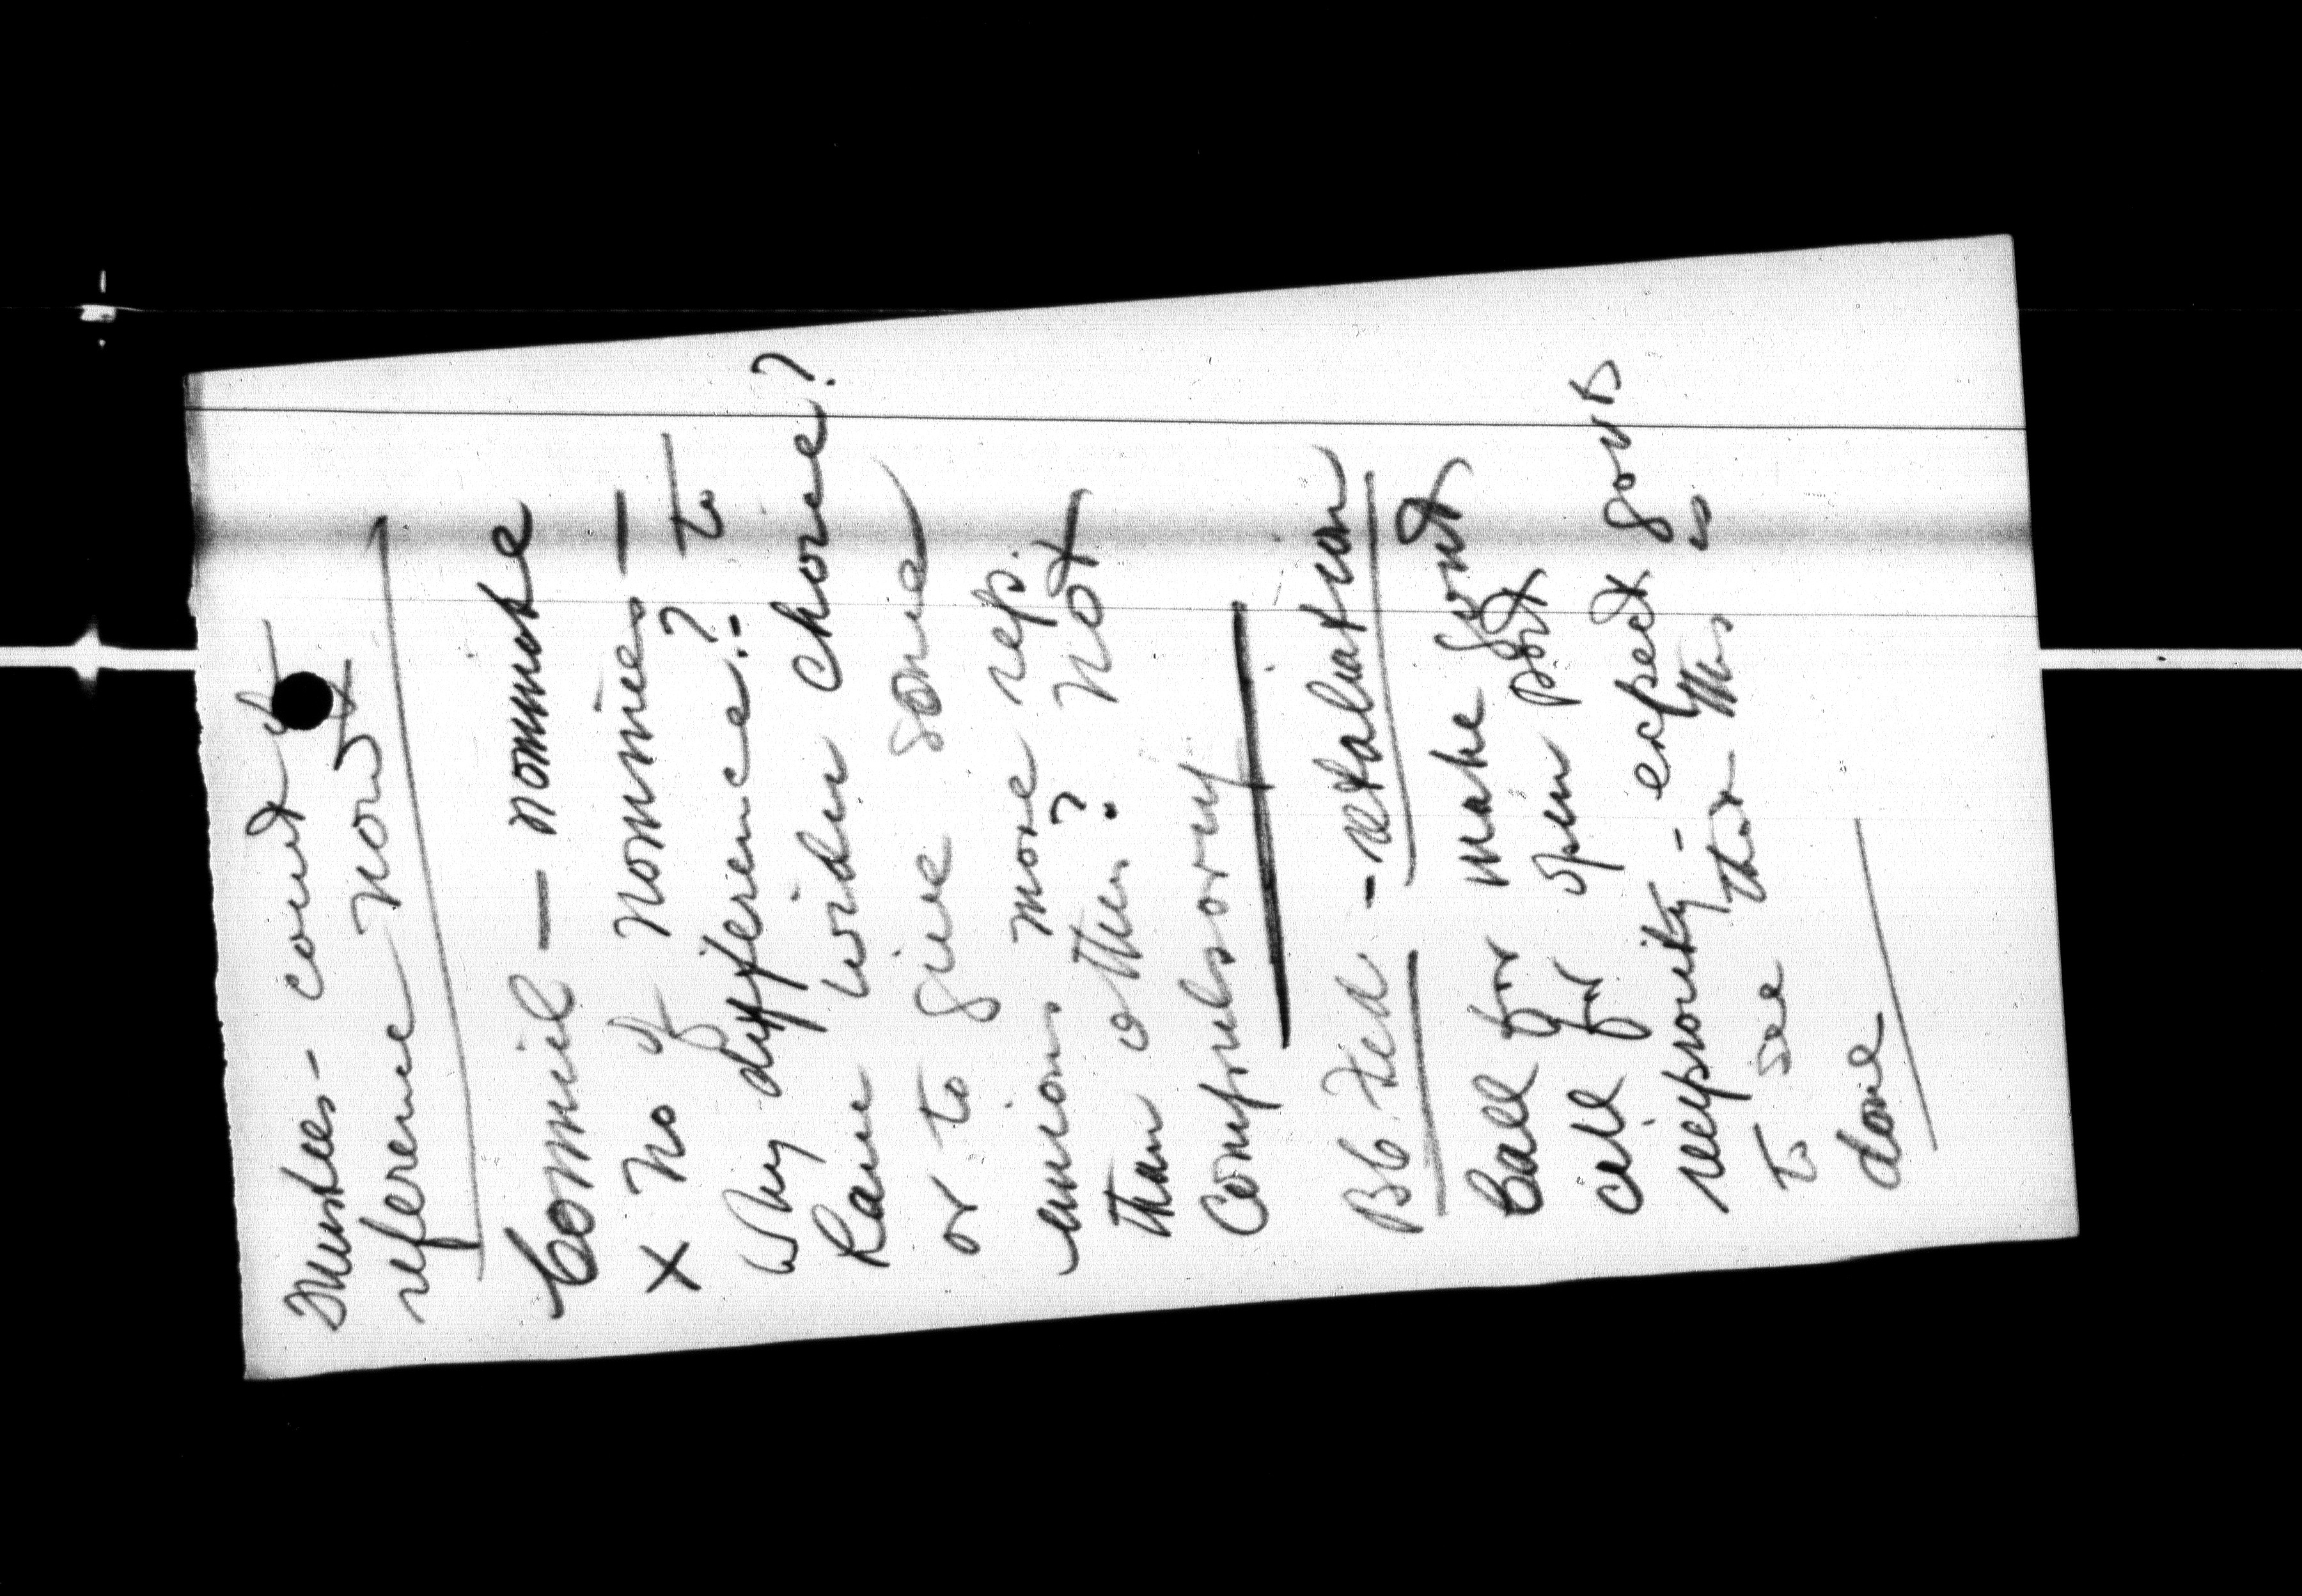 Minutes - court of
reference now
Council - nominate
x No of nominees -
Why difference? - to
have wider choice?
or to give some
unions more reps.
than others? Not
compulsory
Bb. Fed - retaliation
Call for make govt
call for open port
responsity - expect govts
to see that this is
done